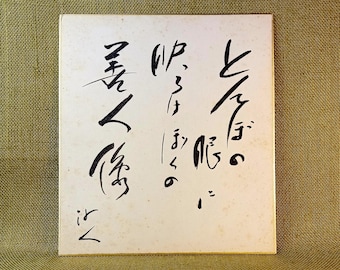 とんぼの
眼に
映るはぼくの
善人像